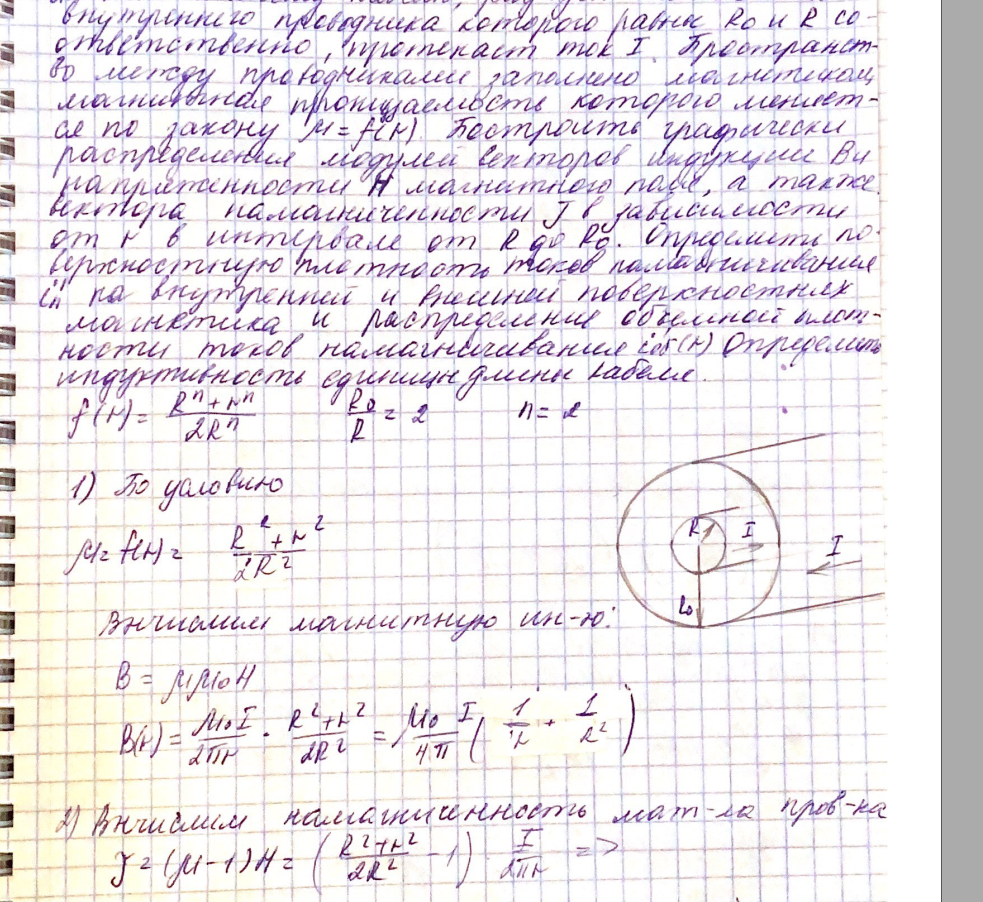 внутреннего проводника которого равны R₀ и R со-
ответственно, протекает ток I. Пространст-
во между проводниками заполнено магнетиком,
магнитная проницаемость которого меняет-
ся по закону μ = f(r) Построить графически
распределения модулей векторов индукции B и
напряженности H магнитного поля, а также
вектора намагниченности J в зависимости
от r в интервале от R до R₀. Определить по-
верхностную плотность токов намагничивания
i'ₙ на внутренней и внешней поверхностях
магнетика и распределение объемной плот-
ности токов намагничивания i'об(r) Определить
индуктивность единицы длины кабеля.
f(r) = (Rⁿ + rⁿ)/(2Rⁿ) R₀/R = 2 n = 2
1) По условию
μ = f(r) = (R² + r²)/(2R²)
R I I R₀
Вычислим магнитную ин-ю:
B = μμ₀H
B(r) = μ₀I/(2πr) · (R² + r²)/(2R²) = μ₀I/(4π) (1/r + 1/r²)
2) Вычислим намагниченность мат-ла пров-ка
J = (μ-1)H = ((R² + r²)/(2R²) - 1) · I/(2πr) =>